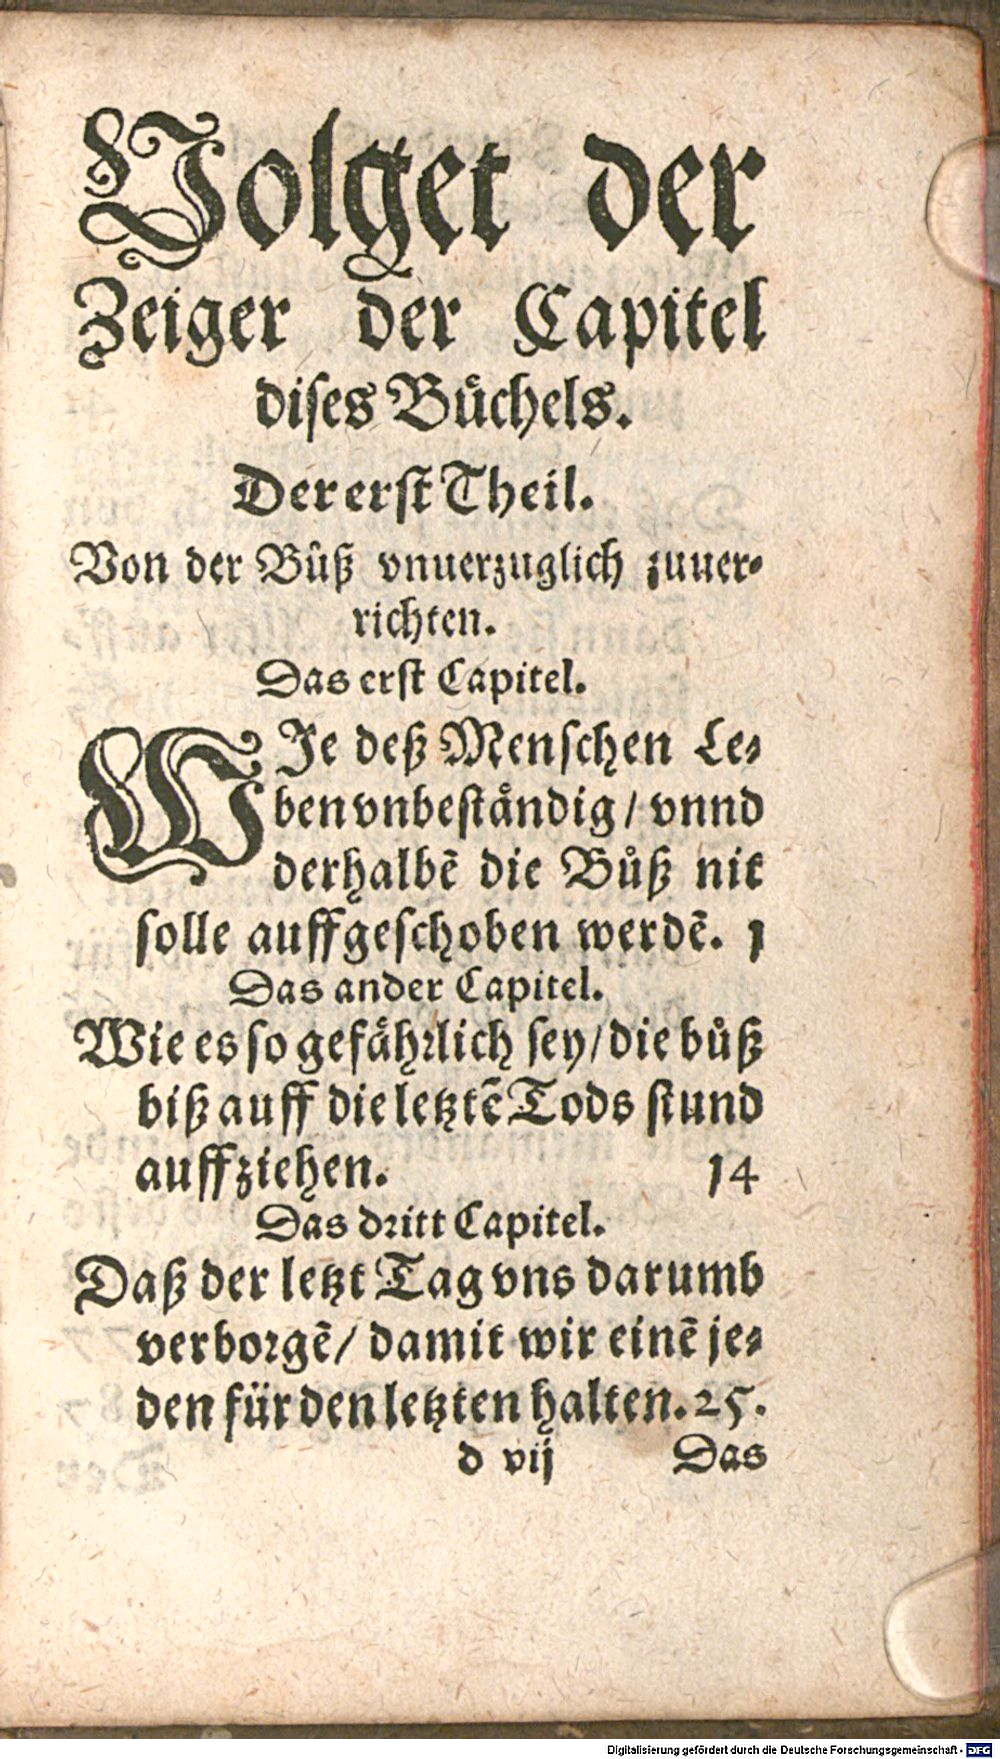 Volget der
Zeiger der Capitel
dises Bůchels.
Der erst Theil.
Von der Bůß vnuerzuglich zuuer⸗
richten.
Das erst Capitel.
WIe deß Menschen Le⸗
ben vnbestaͤndig / vnnd
derhalbẽ die Bůß nit
solle auffgeschoben werdẽ. 1
Das ander Capitel.
Wie es so gefaͤhrlich sey / die bůß
biß auff die letztẽ Tods stund
auffziehen. 14
Das dritt Capitel.
Daß der letzt Tag vns darumb
verborgẽ / damit wir einẽ je⸗
den für den letzten halten. 25.
d vij Das
Digitalisierung gefördert durch die Deutsche Forschungsgemeinschaft - DFG